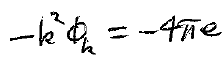 -k²Φₖ = -4πe